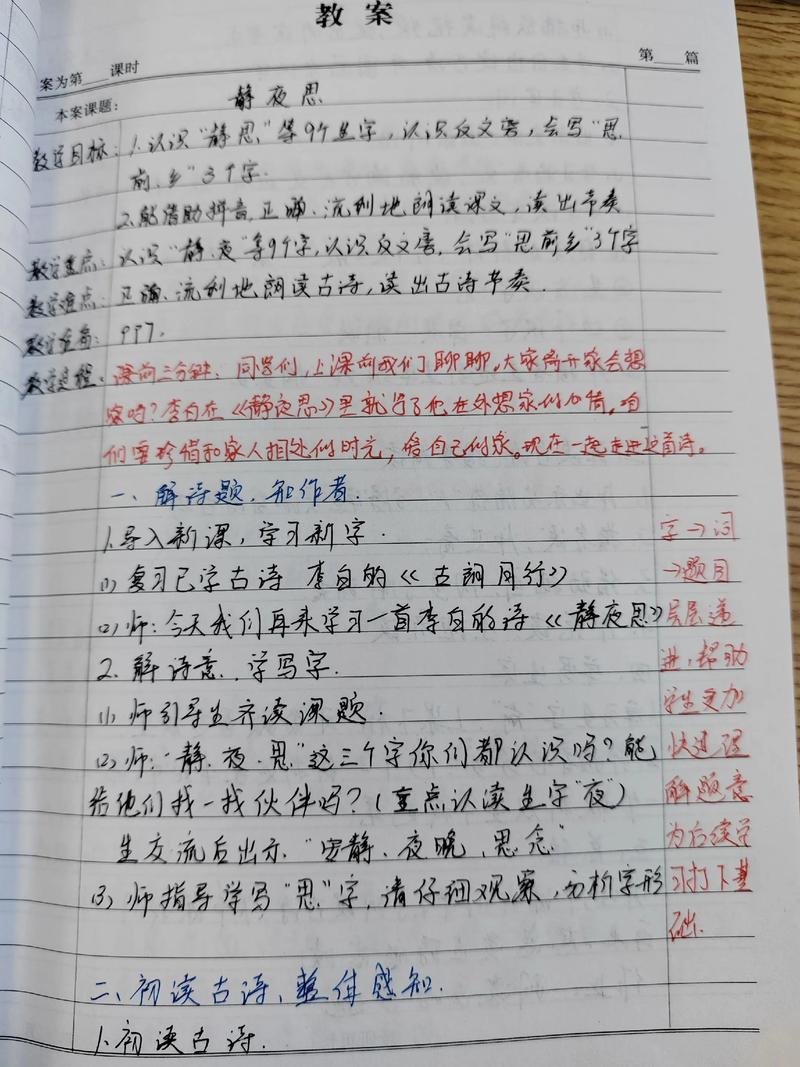 教案
案为第 课时 第 篇
本案课题: 静夜思
教学目标: 1.认识“静、思”等9个生字,认识反文旁,会写“思、
前、乡”3个字.
2.能借助拼音,正确、流利地朗读课文,读出节奏
教学重点: 认识“静、夜”等9个字,认识反文旁,会写“思前乡”3个字
教学难点: 正确、流利地朗读古诗,读出古诗节奏.
教学准备: PPT.
教学过程: 课前三分钟: 同学们,上课前我们聊聊。大家离开家会想
家吗?李白在《静夜思》里就写了他在外想家的心情。咱
们要珍惜和家人相处的时光,爱自己的家。现在一起走进这首诗。
一、解诗题,知作者.
1.导入新课,学习新字.
(1)复习已学古诗 李白的《古朗月行》
(2)师:今天我们再来学习一首李白的诗《静夜思》
2.解诗意,学写字.
(1)师引导生齐读课题.
(2)师:“静、夜、思”这三个字你们都认识吗?能
给他们找一找伙伴吗?(重点认读生字“夜”)
生交流后出示“安静、夜晚、思念”
(3)师指导学写“思”字,请仔细观察,分析字形
字→词
→题目
层层递
进,帮助
学生更加
快速理
解题意
为后续学
习打下基
础.
二、初读古诗、整体感知.
1.初读古诗.